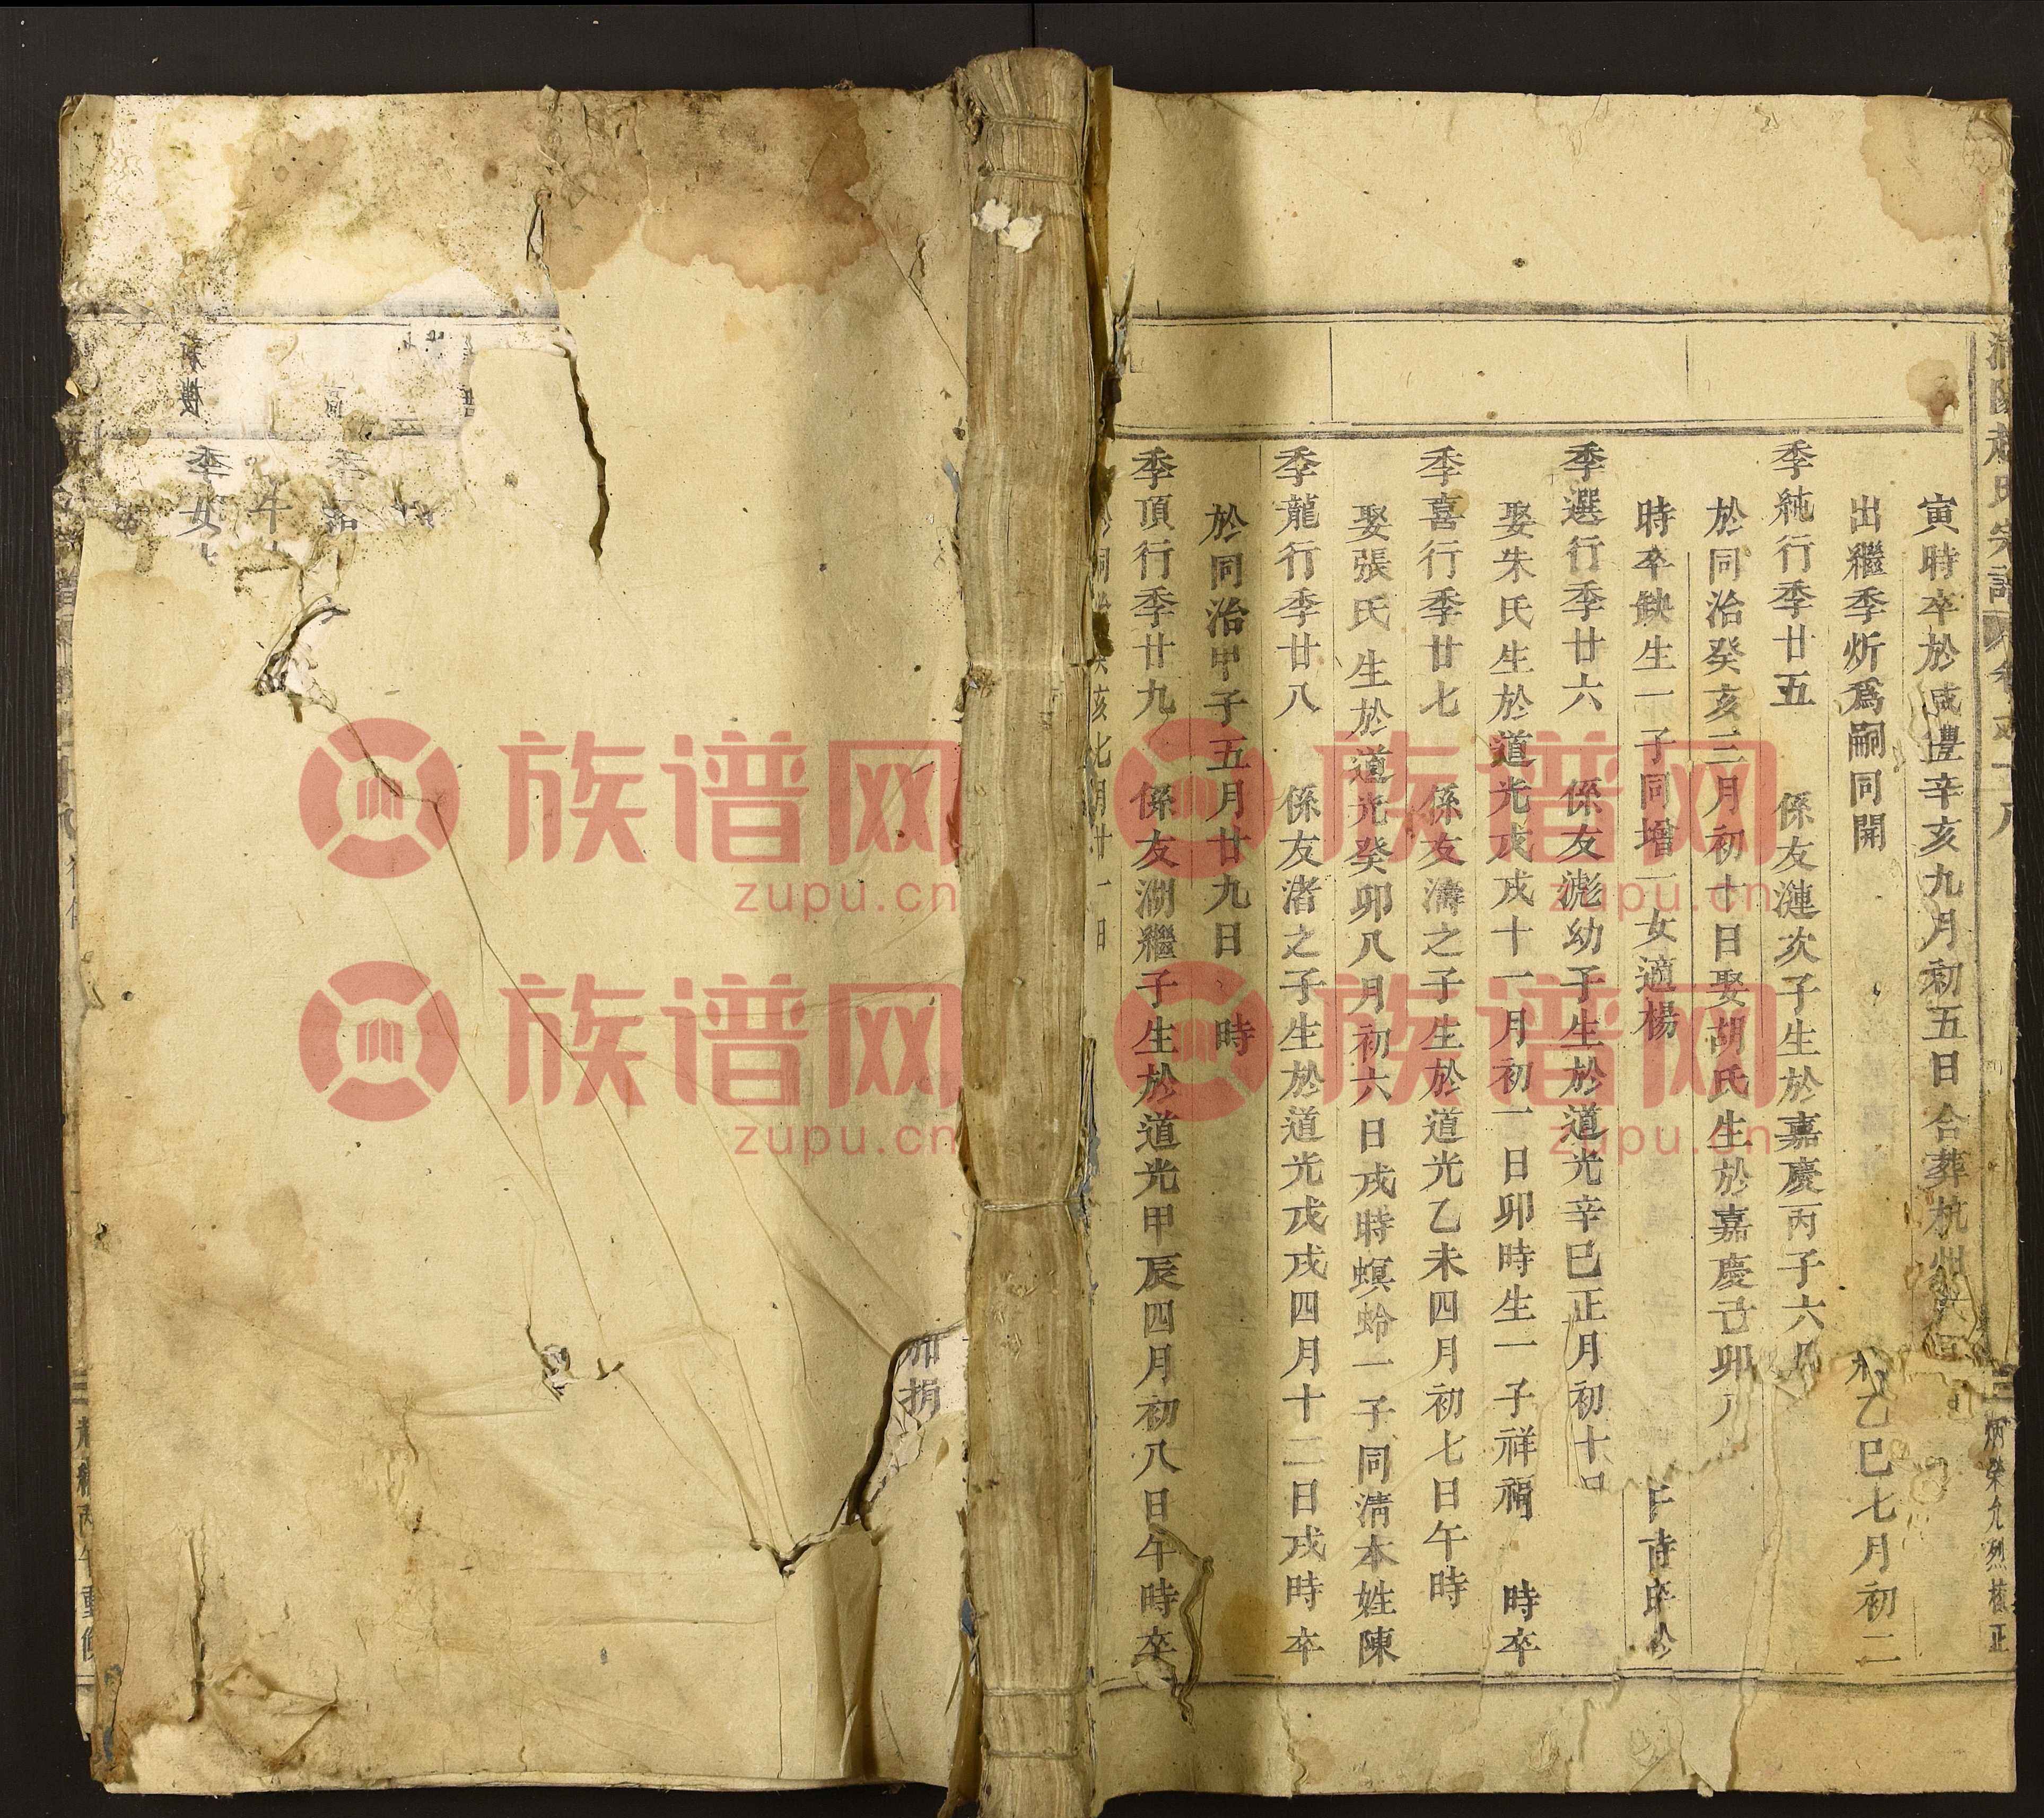 寅時卒於咸豐辛亥九月初五日合葬杭州
出繼季炘爲嗣同開
乙巳七月初二
季純行季廿五 係友漣次子生於嘉慶丙子六月
於同治癸亥三月初十日娶胡氏生於嘉慶己卯八
時卒缺生一子同增一女適楊
季選行季廿六 係友滮幼子生於道光辛巳正月初十日
娶朱氏生於道光戊戌十一月初一日卯時生一子祥福 時卒
季喜行季廿七 係友濤之子生於道光乙未四月初七日午時
娶張氏生於道光癸卯八月初六日戌時螟蛉一子同清本姓陳
季龍行季廿八 係友渚之子生於道光戊戌四月十二日戌時卒
於同治甲子五月廿九日 時
季頂行季廿九 係友湖繼子生於道光甲辰四月初八日午時卒
於同治癸亥七月廿一日
炳榮允烈核正
加捐
季女
光緒丙午重修
族谱网 zupu.cn
族谱网 zupu.cn
族谱网 zupu.cn
族谱网 zupu.cn